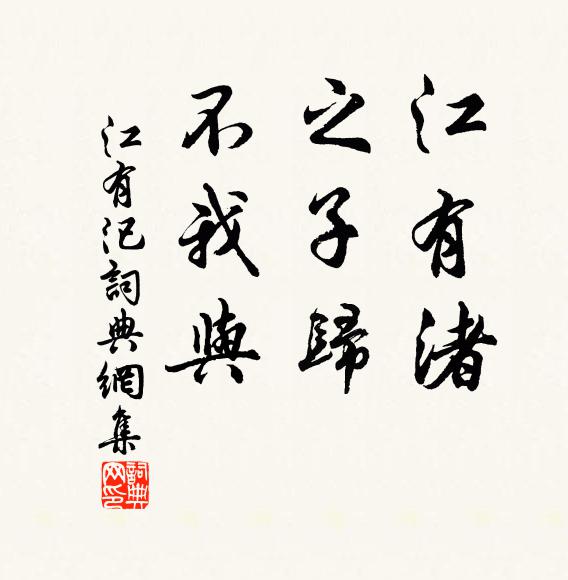 江有渚
之子歸
不我與
江有汜詞典網集
詞典网印